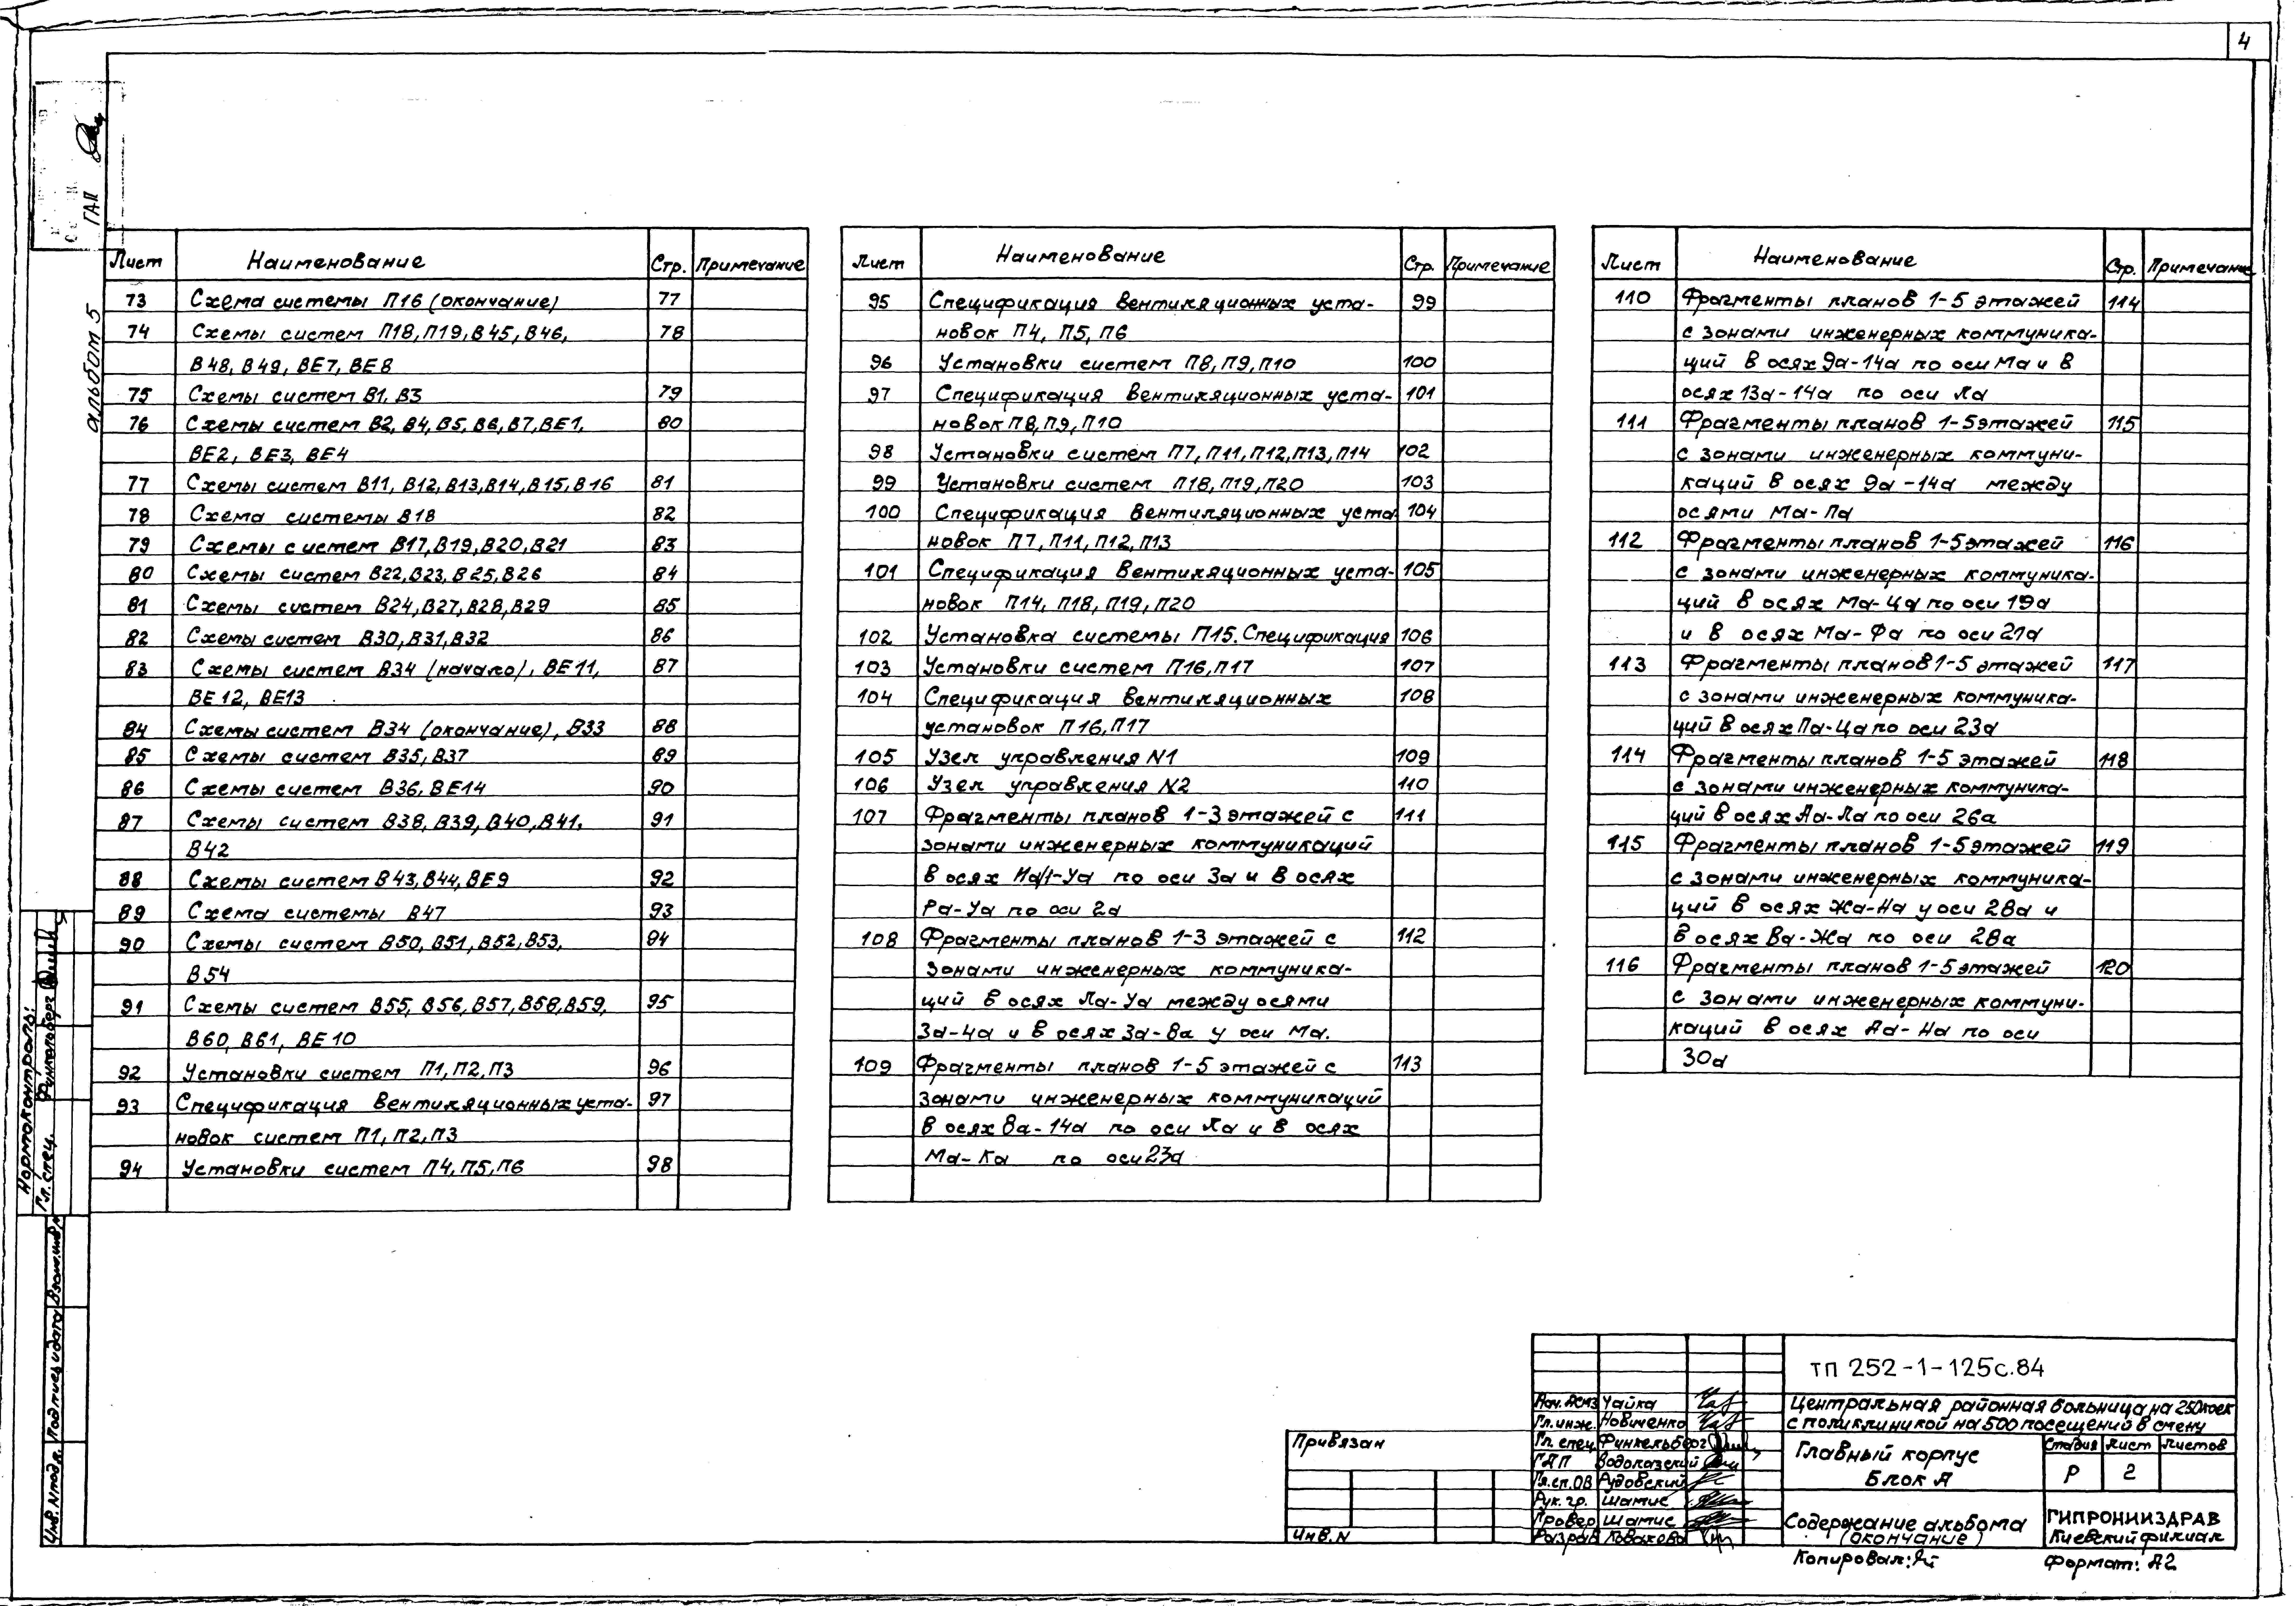 4
ГАП
альбом 5
Лист Наименование Стр. Примечание
73 Схема системы П16 (окончание) 77
74 Схемы систем П18, П19, В45, В46, 78
В48, В49, ВЕ7, ВЕ8
75 Схемы систем В1, В3 79
76 Схемы систем В2, В4, В5, В6, В7, ВЕ1, 80
ВЕ2, ВЕ3, ВЕ4
77 Схемы систем В11, В12, В13, В14, В15, В16 81
78 Схема системы В18 82
79 Схемы систем В17, В19, В20, В21 83
80 Схемы систем В22, В23, В25, В26 84
81 Схемы систем В24, В27, В28, В29 85
82 Схемы систем В30, В31, В32 86
83 Схемы систем В34 (начало), ВЕ11, 87
ВЕ12, ВЕ13
84 Схемы систем В34 (окончание), В33 88
85 Схемы систем В35, В37 89
86 Схемы систем В36, ВЕ14 90
87 Схемы систем В38, В39, В40, В41, 91
В42
88 Схемы систем В43, В44, ВЕ9 92
89 Схема системы В47 93
90 Схемы систем В50, В51, В52, В53, 94
В54
91 Схемы систем В55, В56, В57, В58, В59, 95
В60, В61, ВЕ10
92 Установки систем П1, П2, П3 96
93 Спецификация вентиляционных уста- 97
новок систем П1, П2, П3
94 Установки систем П4, П5, П6 98
Лист Наименование Стр. Примечание
95 Спецификация вентиляционных уста- 99
новок П4, П5, П6
96 Установки систем П8, П9, П10 100
97 Спецификация вентиляционных уста- 101
новок П8, П9, П10
98 Установки систем П7, П11, П12, П13, П14 102
99 Установки систем П18, П19, П20 103
100 Спецификация вентиляционных уста 104
новок П7, П11, П12, П13
101 Спецификация вентиляционных уста- 105
новок П14, П18, П19, П20
102 Установка системы П15. Спецификация 106
103 Установки систем П16, П17 107
104 Спецификация вентиляционных 108
установок П16, П17
105 Узел управления N1 109
106 Узел управления N2 110
107 Фрагменты планов 1-3 этажей с 111
зонами инженерных коммуникаций
в осях На/1-Уа по оси 3а и в осях
Ра-Уа по оси 2а
108 Фрагменты планов 1-3 этажей с 112
зонами инженерных коммуника-
ций в осях Ла-Уа между осями
3а-4а и в осях 3а-8а у оси Ма.
109 Фрагменты планов 1-5 этажей с 113
зонами инженерных коммуникаций
в осях 8а-14а по оси Ла и в осях
Ма-Ка по оси 23а
Лист Наименование Стр. Примечание
110 Фрагменты планов 1-5 этажей 114
с зонами инженерных коммуника-
ций в осях 9а-14а по оси Ма и в
осях 13а-14а по оси Ла
111 Фрагменты планов 1-5 этажей 115
с зонами инженерных коммуни-
каций в осях 9а-14а между
осями Ма-Па
112 Фрагменты планов 1-5 этажей 116
с зонами инженерных коммуника-
ций в осях Ма-Ца по оси 19а
и в осях Ма-Фа по оси 21а
113 Фрагменты планов 1-5 этажей 117
с зонами инженерных коммуника-
ций в осях Па-Ца по оси 23а
114 Фрагменты планов 1-5 этажей 118
с зонами инженерных коммуника-
ций в осях Аа-Ла по оси 26а
115 Фрагменты планов 1-5 этажей 119
с зонами инженерных коммуника-
ций в осях Жа-На у оси 28а и
в осях Ва-Жа по оси 28а
116 Фрагменты планов 1-5 этажей 120
с зонами инженерных коммуни-
каций в осях Аа-На по оси
30а
Нормоконтроль:
Гл. спец. Финкельберг
Инв. N подл. Подпись и дата Взам. инв. N
Привязан
Инв. N
Чайка
Гл. инж. Новиченко
Гл. спец. Финкельберг
ГАП
Гл. сп. ОВ Рудовский
Рук. гр. Шамис
Провер Шамис
Разраб
ТП 252-1-125с.84
Центральная районная больница на 250 коек
с поликлиникой на 500 посещений в смену
Главный корпус
Блок А
Стадия Лист Листов
Р 2
Содержание альбома
(окончание)
ГИПРОНИИЗДРАВ
Киевский филиал
Копировал:
Формат: А2